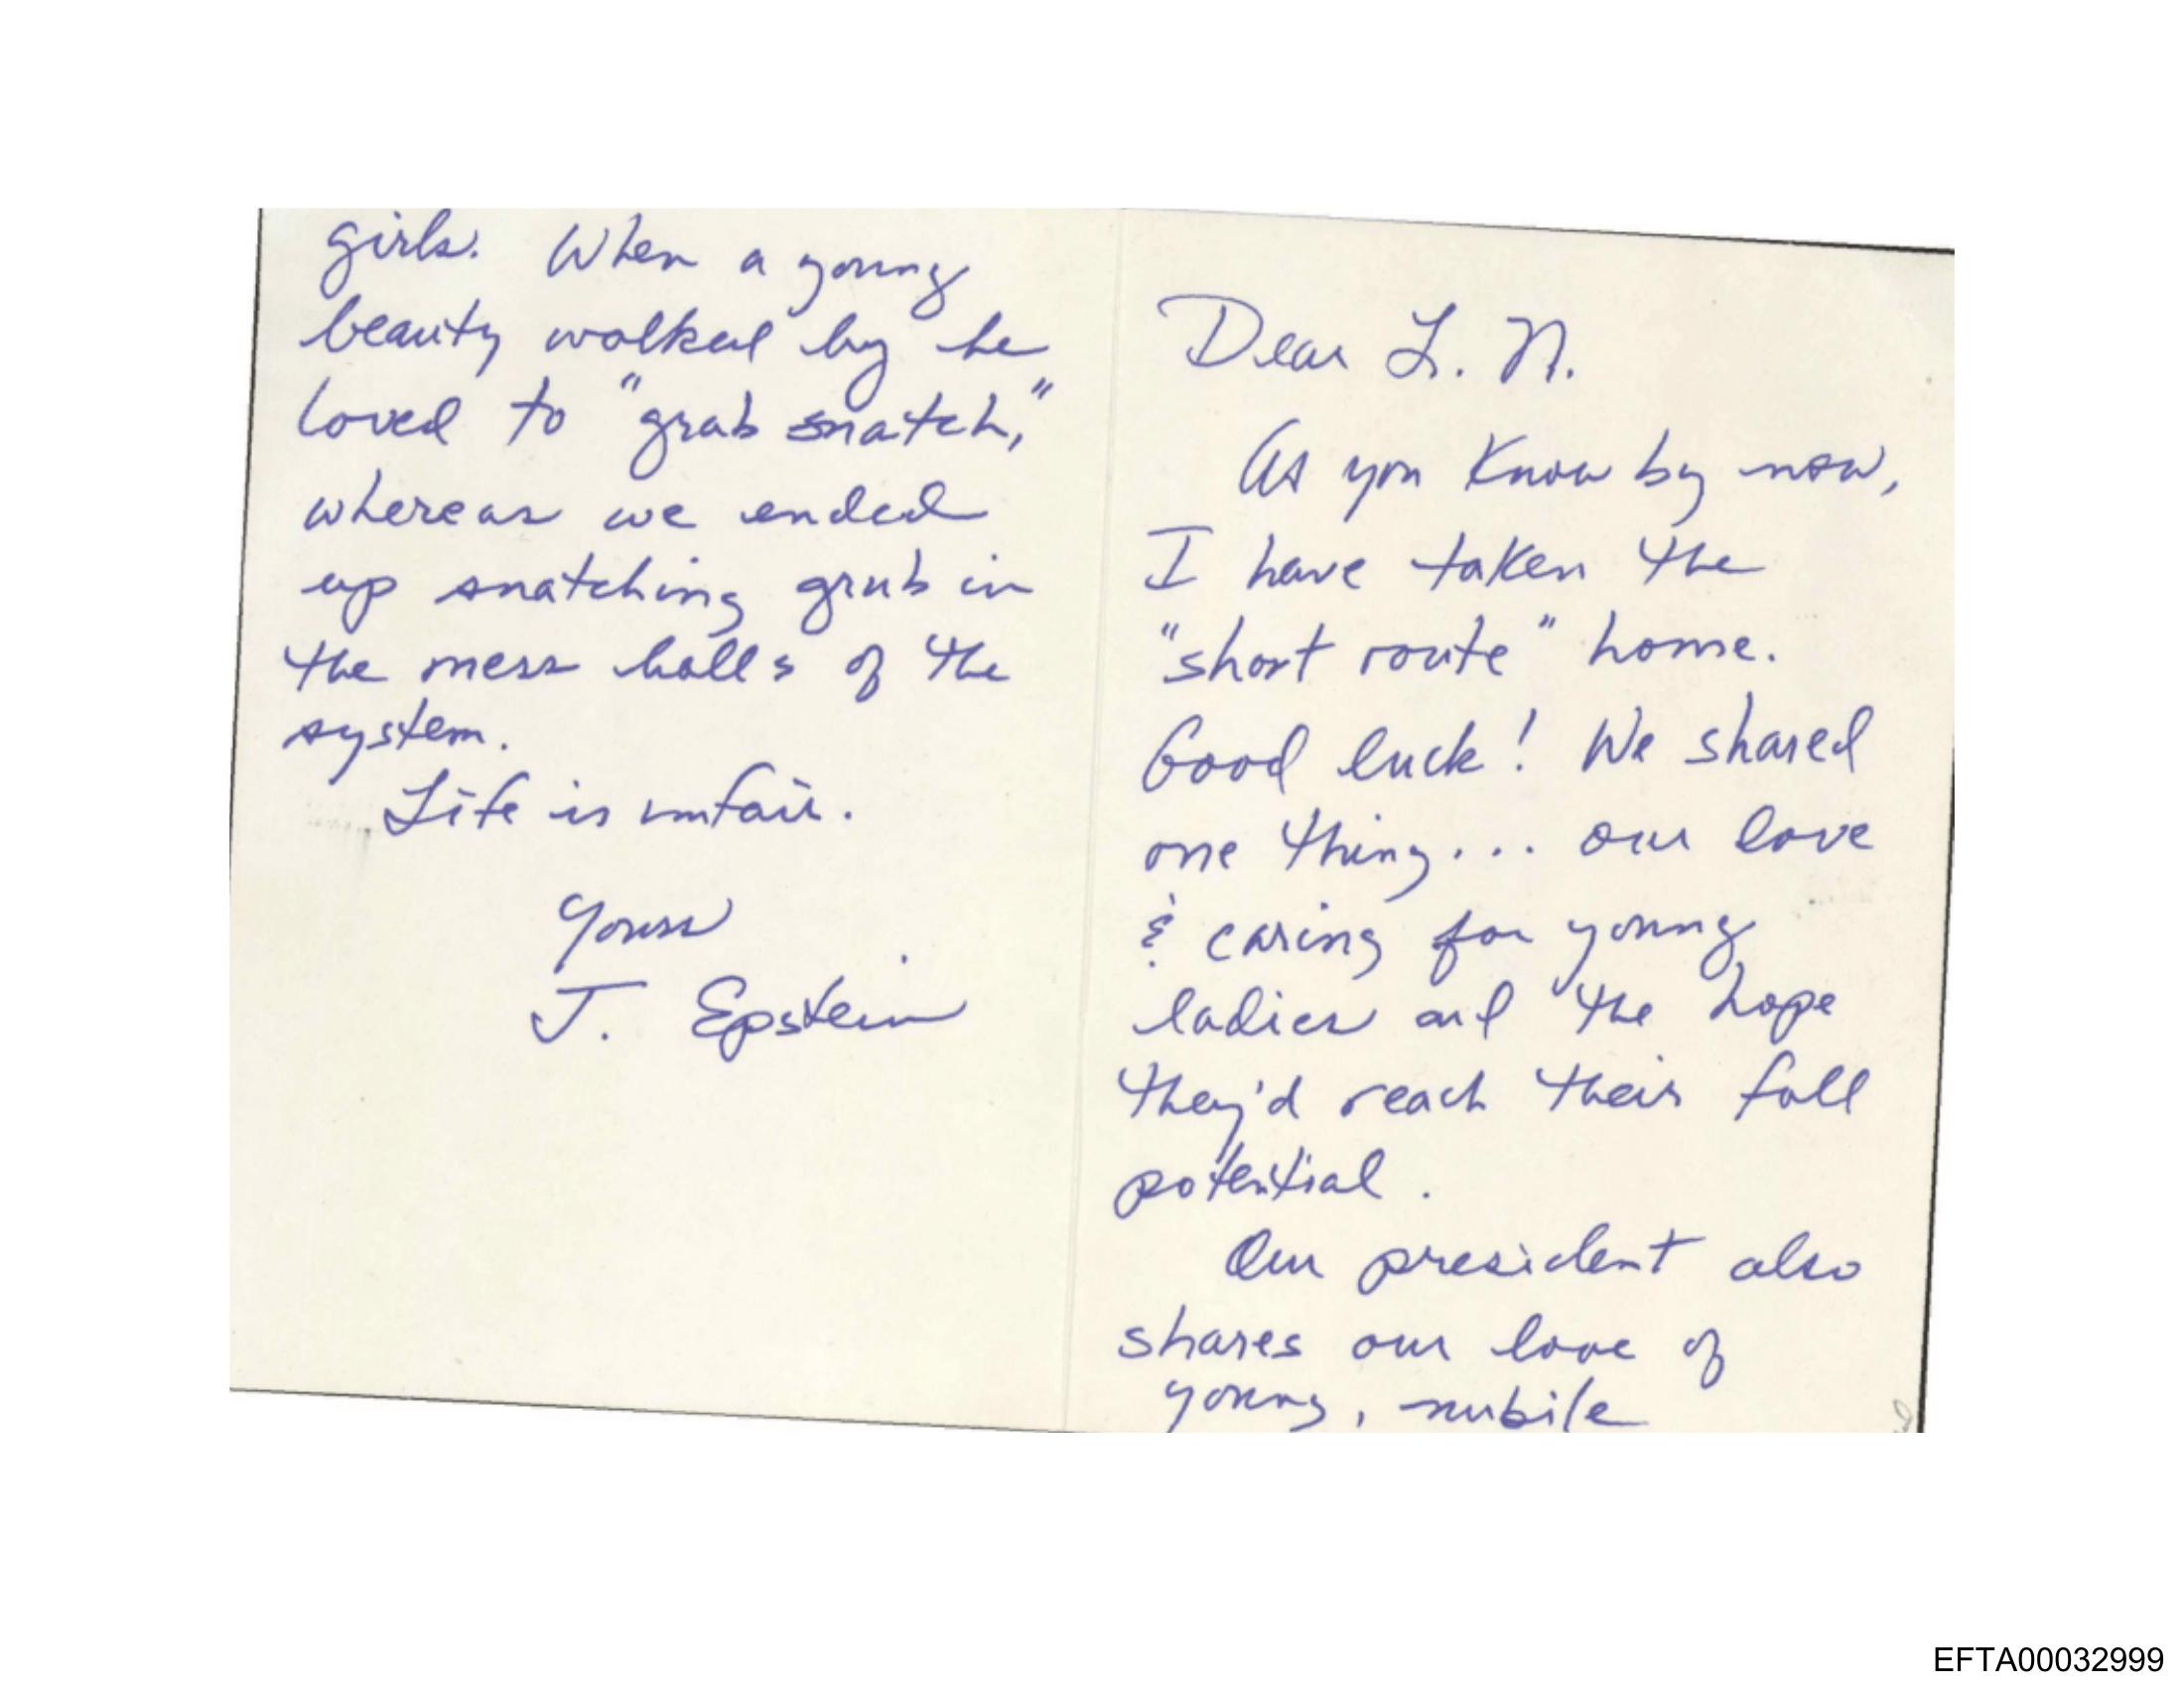 Dear L. N.
As you know by now,
I have taken the
"short route" home.
Good luck! We shared
one thing... our love
& caring for young
ladies and the hope
they'd reach their full
potential.
Our president also
shares our love of
young, nubile
girls. When a young
beauty walked by he
loved to "grab snatch,"
whereas we ended
up snatching grub in
the mess halls of the
system.
Life is unfair.
Yours
J. Epstein
EFTA00032999